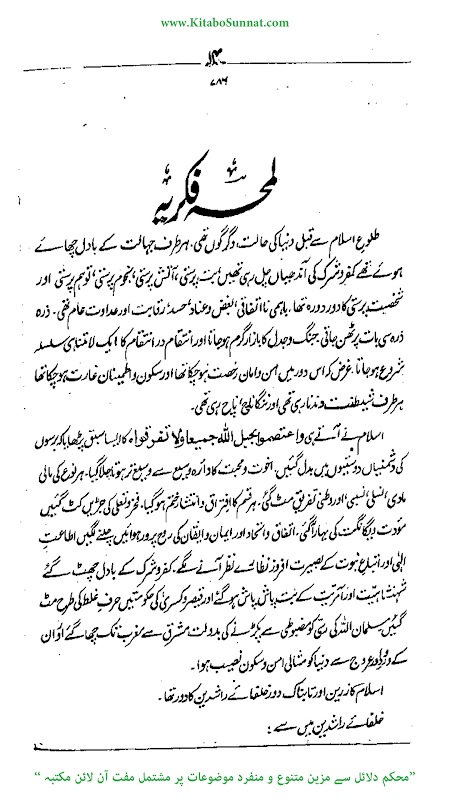 www.KitaboSunnat.com
۷۸۶
لمحہ فکریہ
طلوع اسلام سے قبل دنیا کی حالت، دگرگوں تھی۔ ہر طرف جہالت کے بادل چھائے
ہوئے تھے کفر و شرک کی آندھیاں چل رہی تھیں بت پرستی، آتش پرستی، نجوم پرستی، توہم پرستی اور
شخصیت پرستی کا دور دورہ تھا۔ باہمی نا اتفاقی، بغض و عناد، حسد، رقابت اور عداوت عام تھی۔ ذرہ
ذرہ سی بات پر ٹھن جاتی جنگ و جدل کا بازار گرم ہو جاتا اور انتقام در انتقام کا ایک لامتناہی سلسلہ
شروع ہو جاتا۔ غرض کہ اس دور میں امن و امان رخصت ہو چکا تھا اور سکون و اطمینان غارت ہو چکا تھا
ہر طرف شیطنت دندنا رہی تھی اور ننگا ناچ ناچ رہی تھی۔
اسلام نے آتے ہی واعتصموا بحبل اللہ جمیعا ولا تفرقوا کا ایسا سبق پڑھایا کہ برسوں
کی دشمنیاں دوستیوں میں بدل گئیں، اخوت و محبت کا دائرہ وسیع سے وسیع تر ہوتا چلا گیا۔ ہر نوع کی مالی
مادی، نسلی، نسبی، اور وطنی تفریق مٹ گئی، ہر قسم کا افتراق و انتشار ختم ہو گیا، فخر و تعلی کی جڑیں کٹ گئیں
مودت و یگانگت کی بہار آگئی، اتفاق و اتحاد اور ایمان و ایقان کی روح پرور ہوائیں چلنے لگیں اطاعت
الٰہی اور اتباع نبوت کے بصیرت افروز نظارے نظر آنے لگے، کفر و شرک کے بادل چھٹ گئے
شہنشاہیت اور آمریت کے بت پاش پاش ہو گئے اور قیصر و کسریٰ کی حکومتیں حرف غلط کی طرح مٹ
گئیں مسلمان اللہ کی رسی کو مضبوطی سے پکڑنے کی بدولت مشرق سے مغرب تک چھا گئے اور ان
کے دور عروج سے دنیا کو مثالی امن و سکون نصیب ہوا۔
اسلام کا زرین اور تابناک دور خلفائے راشدین کا دور تھا۔
خلفائے راشدین میں سے :
”محکم دلائل سے مزین متنوع و منفرد موضوعات پر مشتمل مفت آن لائن مکتبہ“